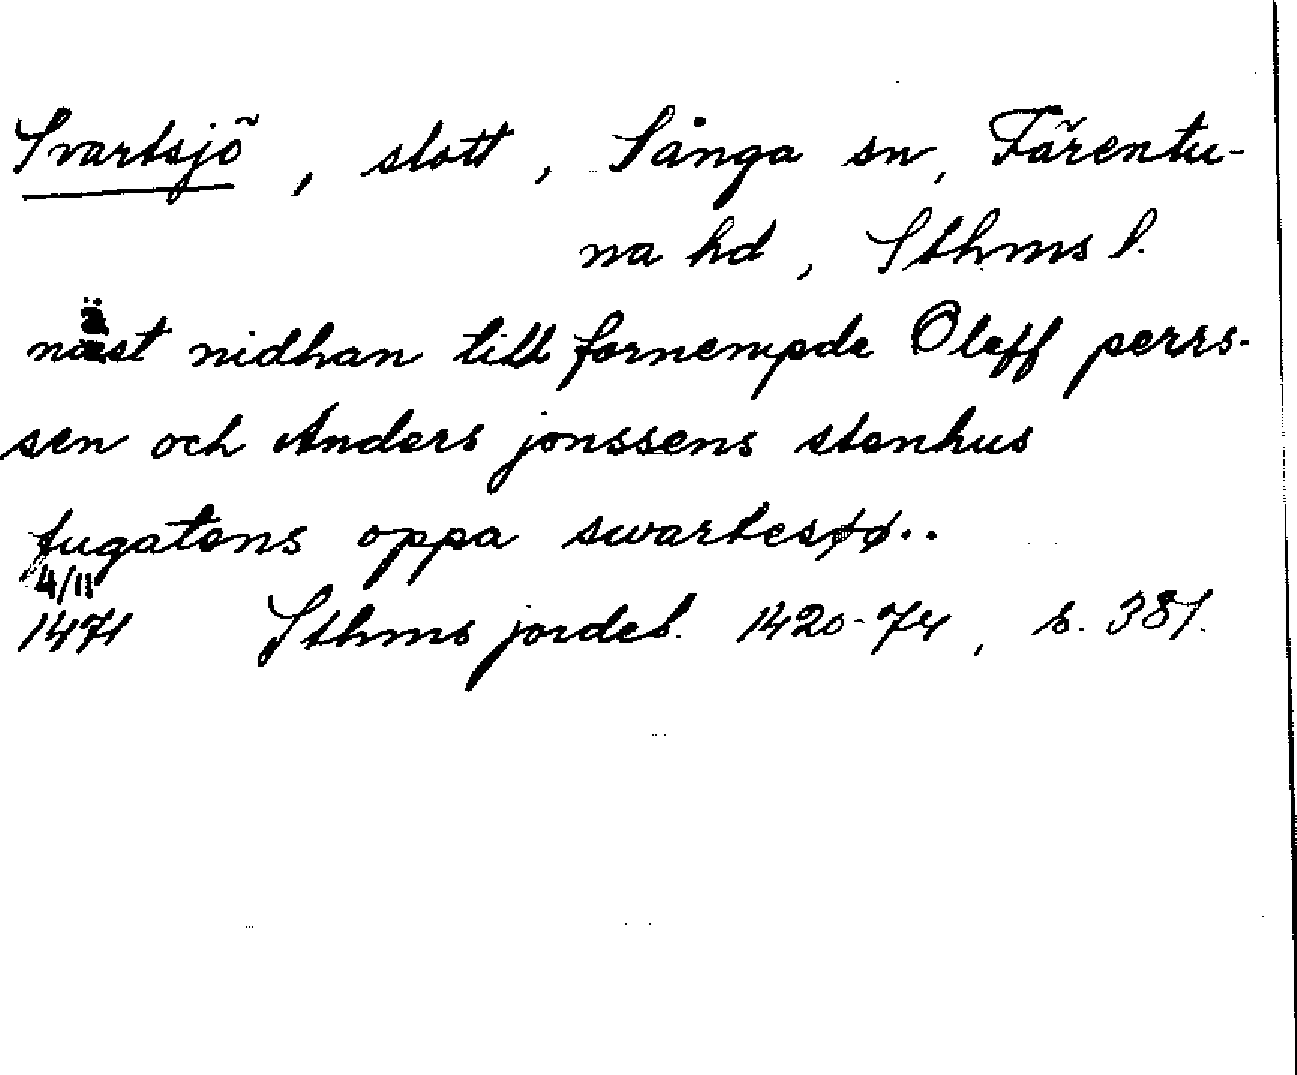 Svartsjö, slott, Sånga sn, Färentu-
na hd, Sthms l.
näst nidhan till fornempde Oleff perrs-
sen och Anders jonssens stenhus
fugatens oppa swartesøø..
4/11
1471 Sthms jordeb. 1420-74, s. 381.